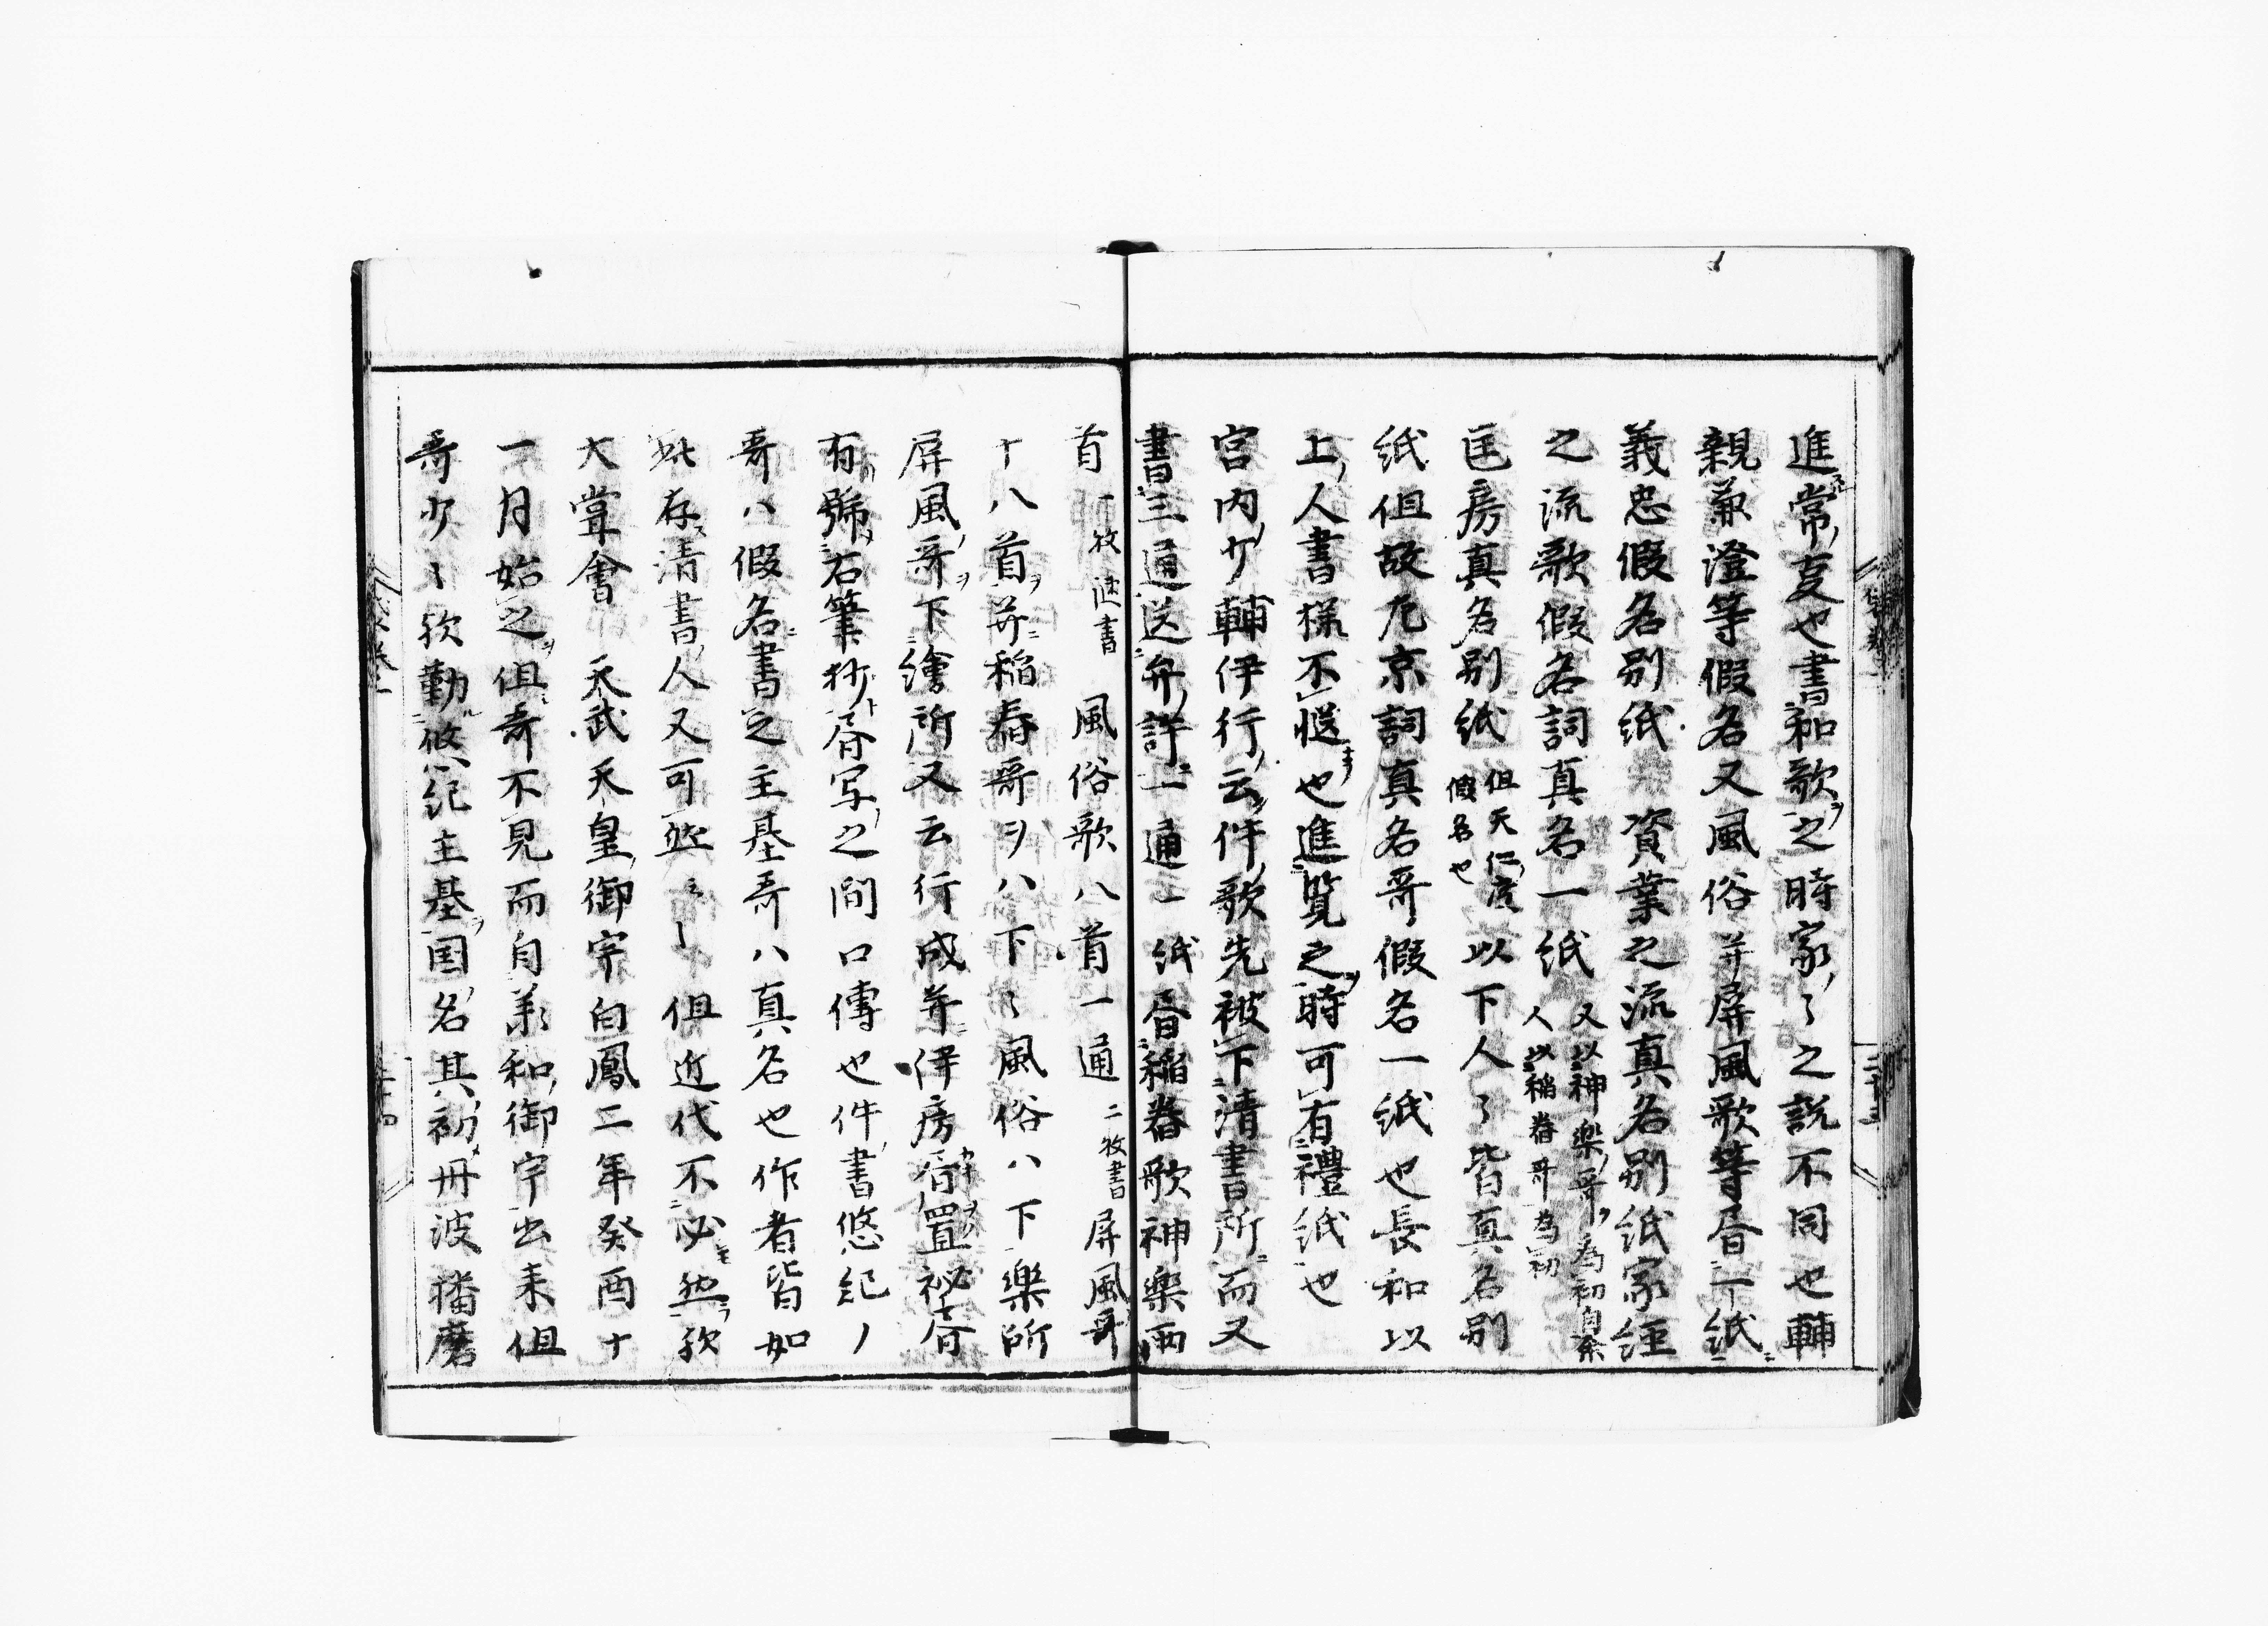 進常夏也書和歌之時家〻之説不同也輔
親兼澄等假名又風俗并屏風歌等昏一紙
義忠假名別紙　資業之流真名別紙家経
之流歌假名詞真名一紙 又以神楽哥為初自余
人以稲舂哥為初
匡房真名別紙 但天仁度
假名也 以下人〻皆真名別
紙但故左京詞真名哥假名一紙也長和以
上人書様不慥也進覧之時可有禮紙也
宮内少輔伊行云件歌先被下清書所而又
書三通送弁許一通ハ一紙昏稲舂歌神楽両
首 一枚 書 風俗歌八首一通 二枚書 屏風哥
十八首并稲舂哥ヲハ下〻風俗ハ下樂所
屏風哥下繪所又云行成并伊房昏置秘昏
有號右筆抄昏写之間口傳也件書悠紀ノ
哥ハ假名書之主基哥ハ真名也作者皆如
此存清書人又可然云〻但近代不必然歟
大嘗會　天武天皇御宇白鳳二年癸酉十
一月始之但哥不見而自承和御宇出来但
哥少〻歟勤悠紀主基国名其初丹波播磨